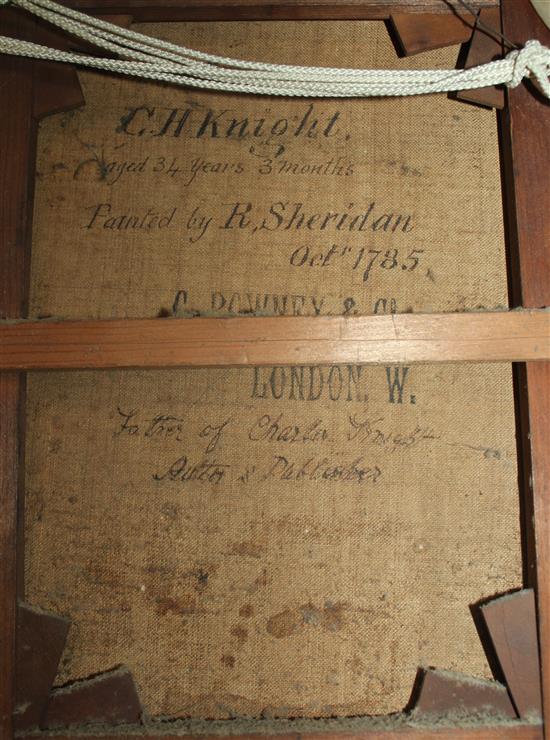 C. H Knight.
aged 34 years 3 months
Painted by R, Sheridan
Octr 1785,
G. ROWNEY & Co
LONDON, W.
Father of Charles Knight
Author & Publisher